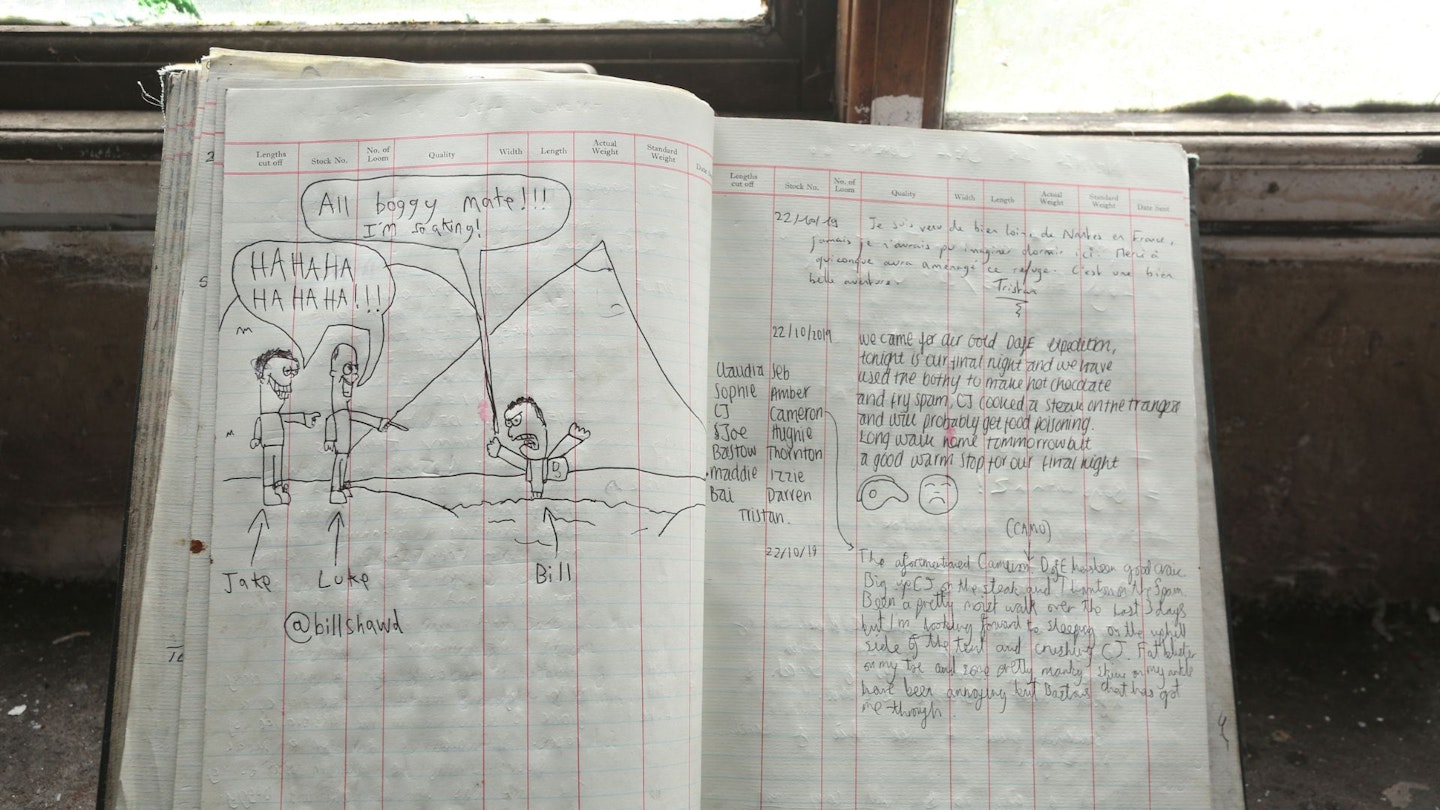 Lengths cut off Stock No. No. of Loom Quality Width Length Actual Weight Standard Weight
All boggy mate!!!
I'm soaking!
HAHAHA
HAHAHA!!!
Jake Luke Bill
@billshawd
Lengths cut off Stock No. No. of Loom Quality Width Length Actual Weight Standard Weight Date Sent
22/10/19 Je suis venu de bien loin, de Nantes en France,
jamais je n'aurais pu imaginer dormir ici. Merci à
quiconque aura aménagé ce refuge. C'est une bien
belle aventure.
Tristan
22/10/2019 we came for our Gold DofE expedition,
tonight is our final night and we have
used the bothy to make hot chocolate
and fry spam, CJ cooked a steak on the trangia
and will probably get food poisoning.
Long walk home tommorrow but
a good warm stop for our final night
Claudia Seb
Sophie Amber
CJ Cameron
Joe Hughie
Bastow Thornton
Maddie Izzie
Bai Darren
Tristan.
(CAMO)
22/10/19 The aforementioned Cameron. DofE has been good craic
Big up CJ on the steak and Thornton on the Spam.
Been a pretty moist walk over the last 3 days
but I'm looking forward to sleeping on the uphill
side of the tent and crushing CJ. Fat blister
on my toe and some pretty manky skin on my ankle
have been annoying but Bastow's chat has got
me through.